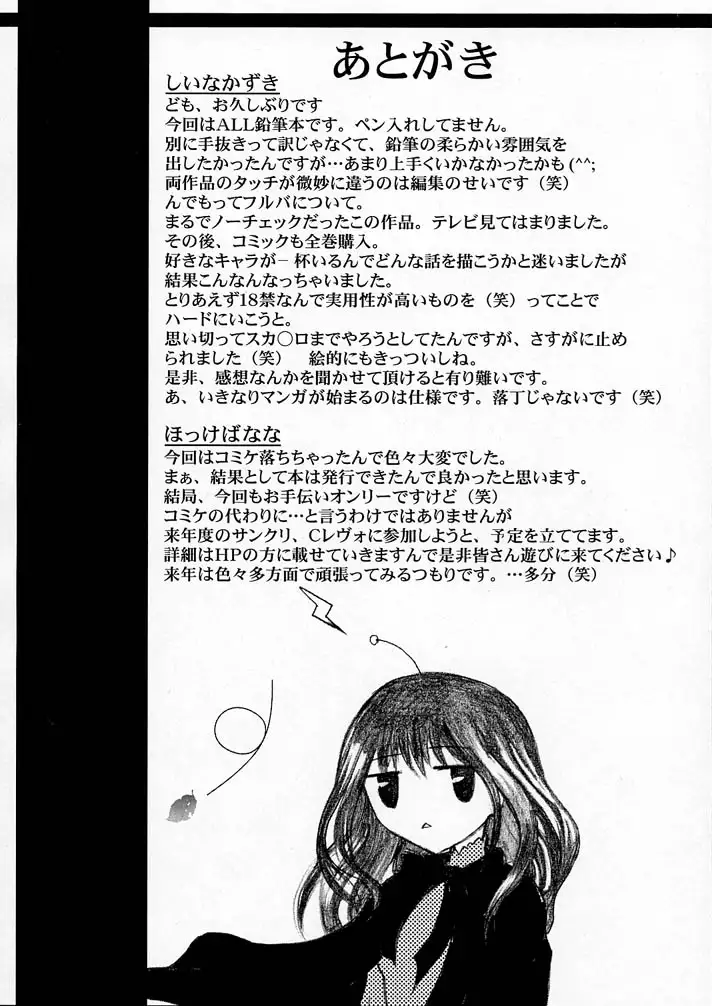 あとがき
しいなかずき
ども、お久しぶりです
今回はALL鉛筆本です。ペン入れしてません。
別に手抜きって訳じゃなくて、鉛筆の柔らかい雰囲気を
出したかったんですが…あまり上手くいかなかったかも(^^;
両作品のタッチが微妙に違うのは編集のせいです（笑）
んでもってフルバについて。
まるでノーチェックだったこの作品。テレビ見てはまりました。
その後、コミックも全巻購入。
好きなキャラが一杯いるんでどんな話を描こうかと迷いましたが
結果こんなんなっちゃいました。
とりあえず18禁なんで実用性が高いものを（笑）ってことで
ハードにいこうと。
思い切ってスカ〇ロまでやろうとしてたんですが、さすがに止め
られました（笑）　絵的にもきっついしね。
是非、感想なんかを聞かせて頂けると有り難いです。
あ、いきなりマンガが始まるのは仕様です。落丁じゃないです（笑）
ほっけばなな
今回はコミケ落ちちゃったんで色々大変でした。
まぁ、結果として本は発行できたんで良かったと思います。
結局、今回もお手伝いオンリーですけど（笑）
コミケの代わりに…と言うわけではありませんが
来年度のサンクリ、Cレヴォに参加しようと、予定を立ててます。
詳細はHPの方に載せていきますんで是非皆さん遊びに来てください♪
来年は色々多方面で頑張ってみるつもりです。…多分（笑）